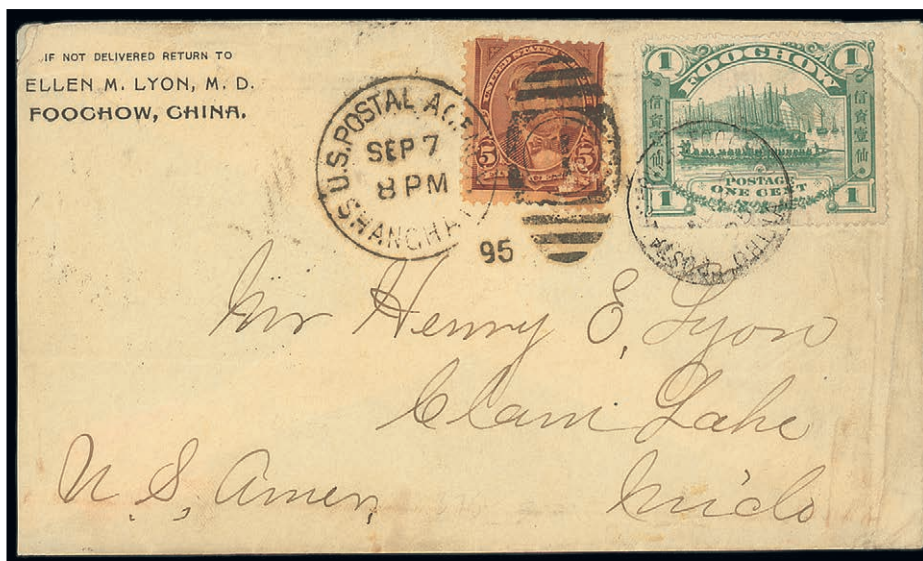 IF NOT DELIVERED RETURN TO
ELLEN M. LYON, M. D.
FOOCHOW, CHINA.
U.S. POSTAL AGENCY
SEP 7
8 PM
SHANGHAI
95
UNITED STATES
5 5
1 FOOCHOW 1
信資壹仙
信資壹仙
POSTAGE
ONE CENT
1 1
Mr Henry E. Lyon
Clam Lake
Mich
U. S. Amer.